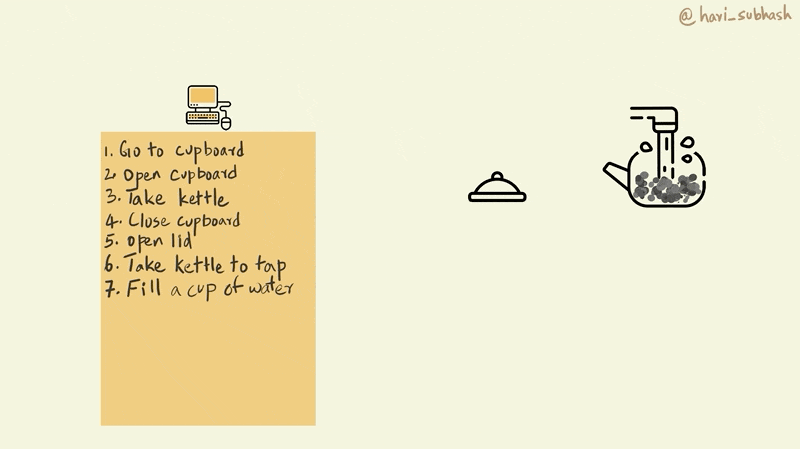 @hari_subhash
1. Go to cupboard
2. Open cupboard
3. Take kettle
4. Close cupboard
5. Open lid
6. Take kettle to tap
7. Fill a cup of water